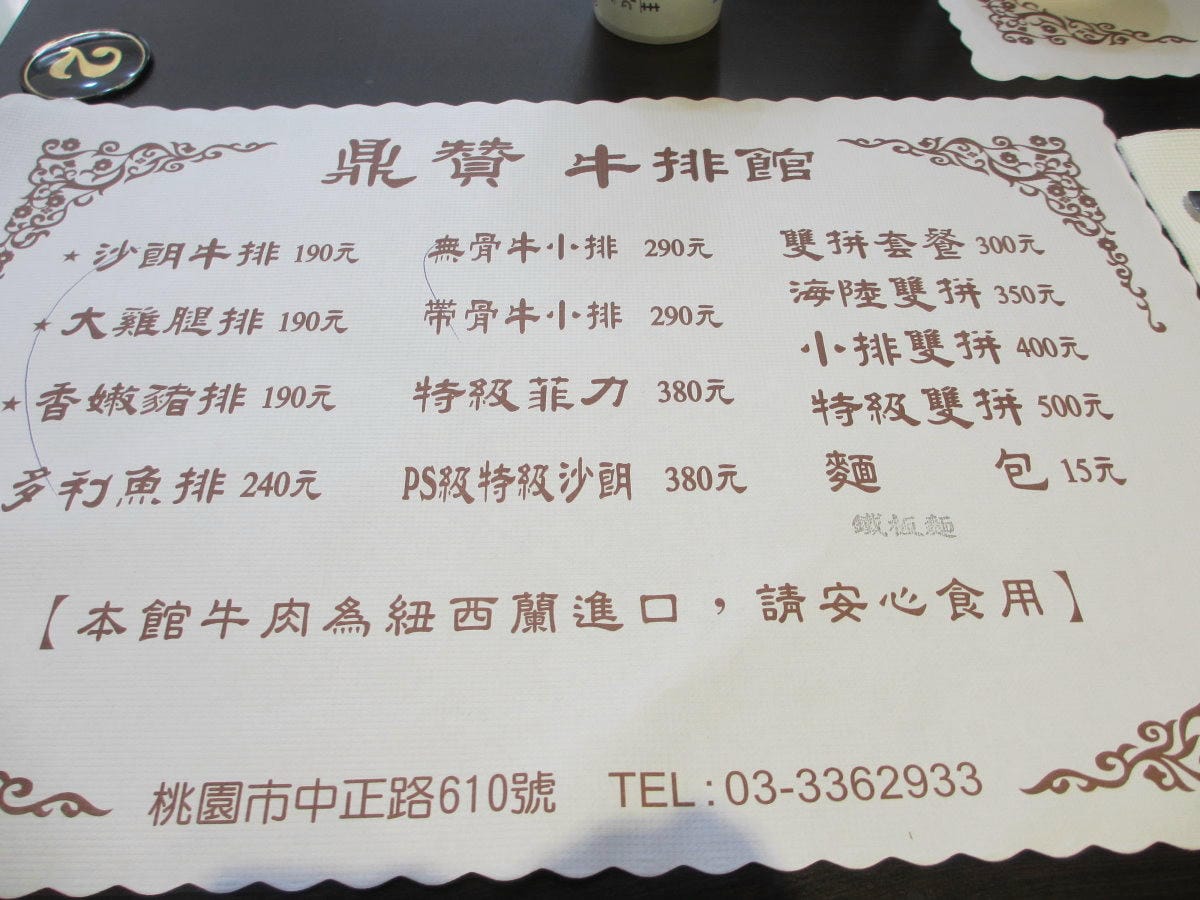 2
鼎贊 牛排館
★ 沙朗牛排 190元
★ 大雞腿排 190元
★ 香嫩豬排 190元
多利魚排 240元
無骨牛小排 290元
帶骨牛小排 290元
特級菲力 380元
PS級特級沙朗 380元
雙拼套餐 300元
海陸雙拼 350元
小排雙拼 400元
特級雙拼 500元
麵包 15元
鐵板麵
【本館牛肉為紐西蘭進口，請安心食用】
桃園市中正路610號 TEL:03-3362933